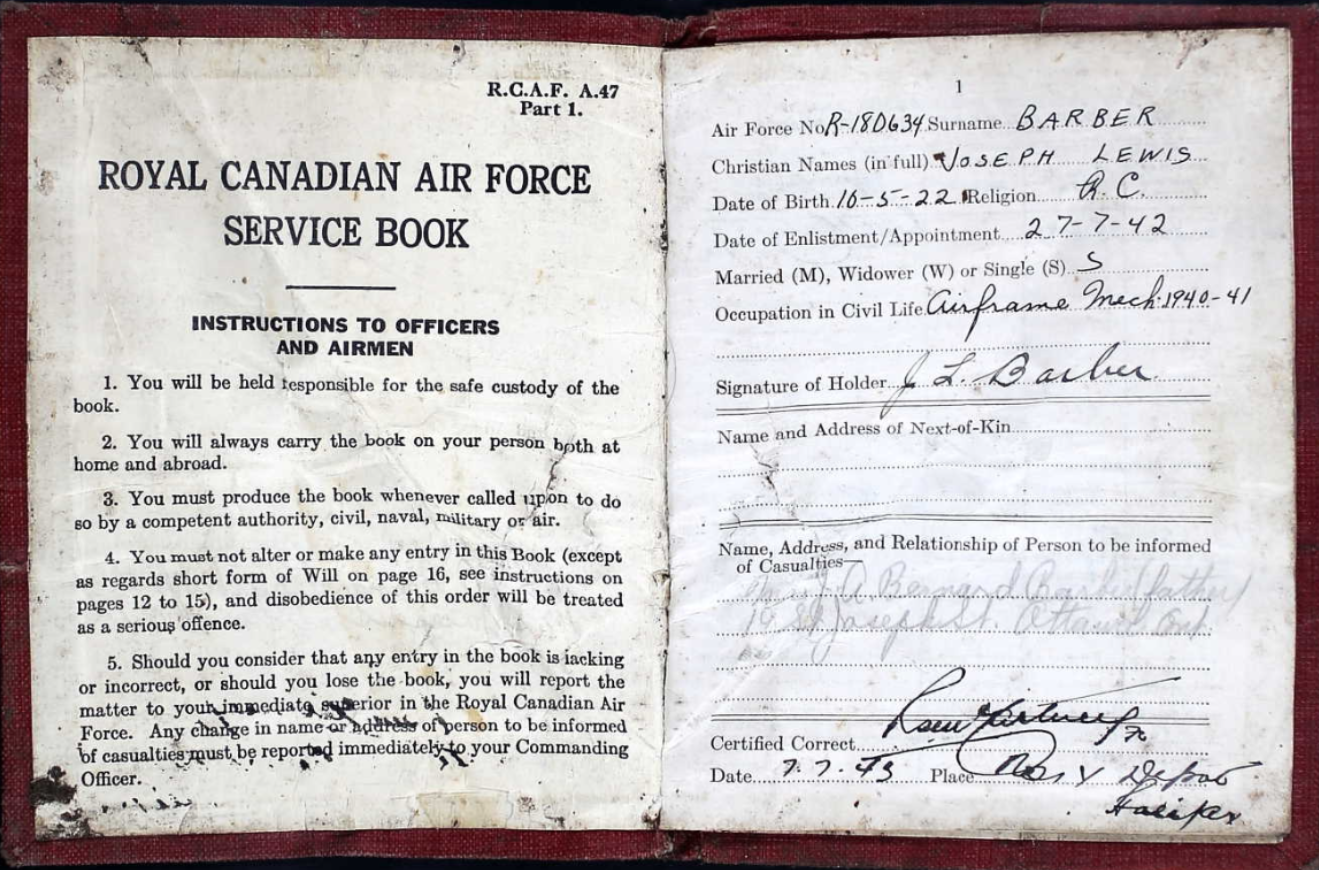 R.C.A.F. A.47
Part 1.
ROYAL CANADIAN AIR FORCE
SERVICE BOOK
INSTRUCTIONS TO OFFICERS
AND AIRMEN
1. You will be held responsible for the safe custody of the
book.
2. You will always carry the book on your person both at
home and abroad.
3. You must produce the book whenever called upon to do
so by a competent authority, civil, naval, military or air.
4. You must not alter or make any entry in this Book (except
as regards short form of Will on page 16, see instructions on
pages 12 to 15), and disobedience of this order will be treated
as a serious offence.
5. Should you consider that any entry in the book is lacking
or incorrect, or should you lose the book, you will report the
matter to your immediate superior in the Royal Canadian Air
Force. Any change in name or address of person to be informed
of casualties must be reported immediately to your Commanding
Officer.
1
Air Force No R-180634 Surname BARBER
Christian Names (in full) JOSEPH LEWIS
Date of Birth 16-5-22 Religion R.C.
Date of Enlistment/Appointment 27-7-42
Married (M), Widower (W) or Single (S) S
Occupation in Civil Life Airframe Mech. 1940-41
Signature of Holder J L. Barber
Name and Address of Next-of-Kin
Name, Address, and Relationship of Person to be informed
of Casualties—
J. A. Bernard Barber (father)
St Joseph St. Ottawa Ont
Certified Correct
Date 7.7.43 Place Y Depot
Halifax